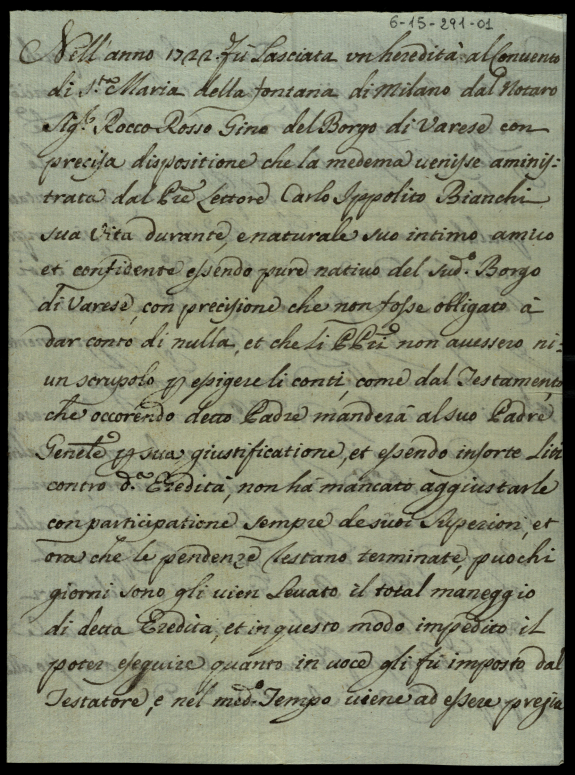 6-15-291-01
Nell'anno 1722 fù Lasciata vn heredità al Convento
di S.ta Maria della fontana di Milano dal Notaro
Sig.r Rocco Rosso Gino del Borgo di Varese con
precisa dispositione che la medema venisse aminis=
trata dal Pre Lettore Carlo Ippolito Bianchi
sua vita durante, e naturale suo intimo amico
et confidente essendo pure nativo del sud.o Borgo
di Varese, con precisione che non fosse obligato à
dar conto di nulla, et che li PPri non avessero ni=
un scrupolo p esigere li conti, come dal Testamento
che occorendo detto Padre manderà al suo Padre
Genele p sua giustificatione, et essendo insorte Liti
contro d.a Eredità, non hà mancato aggiustarle
con participatione sempre de suoi Superiori, et
ora che le pendenze restano terminate, puochi
giorni sono gli vien Levato il total maneggio
di detta Eredità, et in questo modo impedito il
poter eseguire quanto in voce gli fù imposto dal
Testatore, e nel med.o Tempo viene ad essere